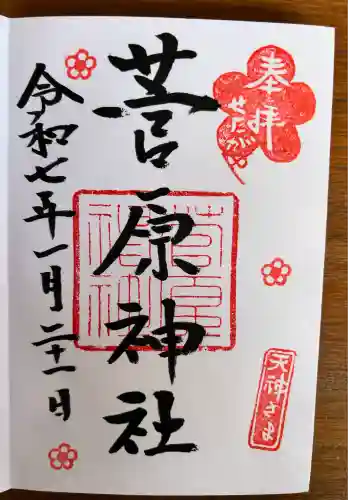 奉拝
せたがや
菅原神社
菅原神社
天神さま
令和七年一月二十一日